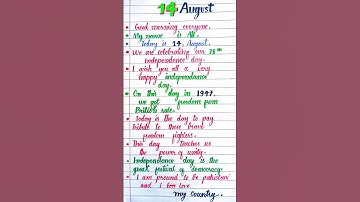 14 August
Good morning everyone.
My name is Ali.
Today is 14 August.
We are celebrating our 78th
independence day.
I wish you all a very
happy independence
day.
On this day in 1947.
we got freedom from
British rule.
Today is the day to pay
tribute to those brave
freedom fighters.
This day teaches us
the power of unity.
Independence day is the
great festival of democracy.
I am pround to be pakistani
and I love
my country.